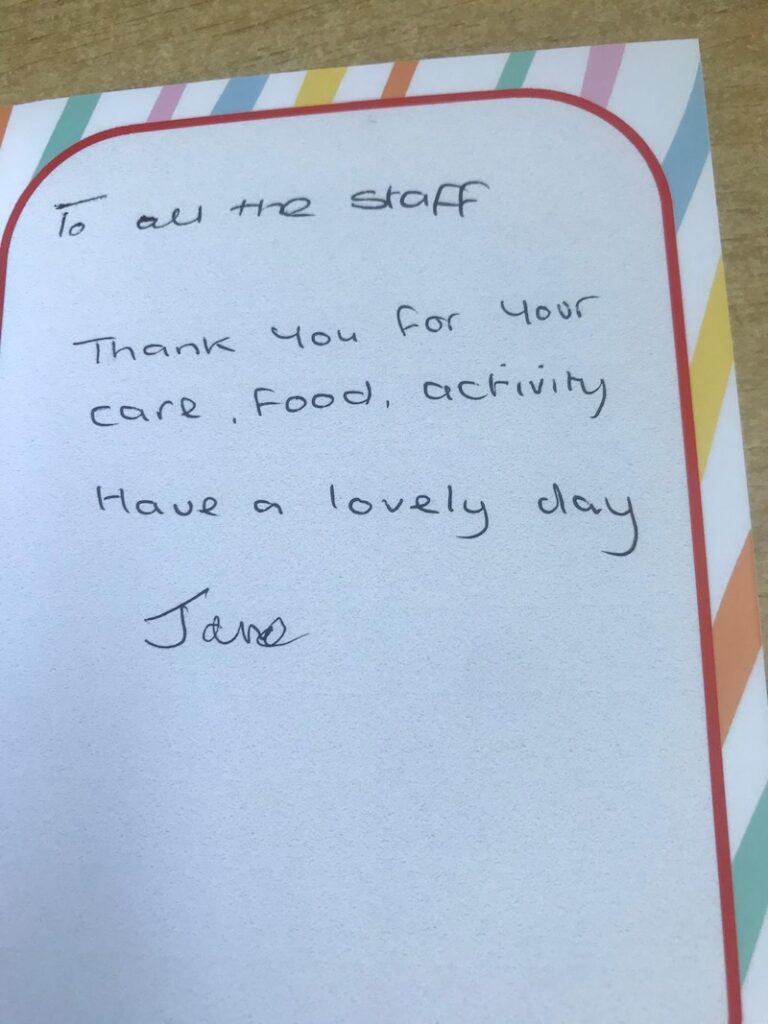 To all the staff
Thank you for your
care, Food, activity
Have a lovely day
Jane